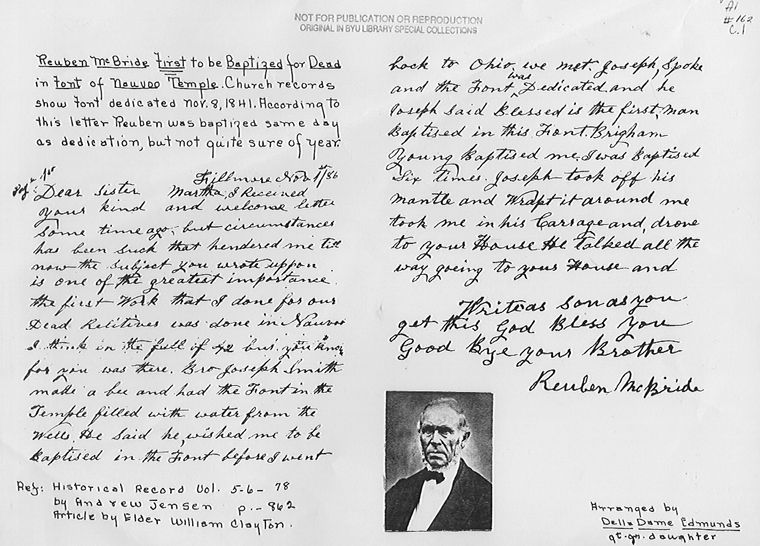 NOT FOR PUBLICATION OR REPRODUCTION
ORIGINAL IN BYU LIBRARY SPECIAL COLLECTIONS
A1
#162
C.1
Reuben McBride First to be Baptized for Dead
in Font of Nauvoo Temple. Church records
show font dedicated Nov. 8, 1841. According to
this letter Reuben was baptized same day
as dedication, but not quite sure of year.
Pg. 1st
Fillmore Nov 1st/86
Dear Sister Martha, I Received
your kind and welcome letter
some time ago, but circumstances
has been such that hendered me till
now the subject you wrote uppon
is one of the greatest importance.
the first Work that I done for our
Dead Relitives was done in Nauvoo
I think in the fall of 42 but you know
for you was there. Bro Joseph Smith
made a bee and had the Font in the
Temple filled with water from the
Wells. He said he wished me to be
Baptised in the Font before I went
Ref: Historical Record Vol. 5-6-78
by Andrew Jensen p.-862
Article by Elder William Clayton.
back to Ohio, we met. Joseph, Spoke
and the Font was Dedicated and he
Joseph Said Blessed is the first Man
Baptised in this Font Brigham
Young Baptised me. I was Baptised
Six times. Joseph took off his
Mantle and Wrapt it around me
took me in his Carrage and, drove
to your House He talked all the
way going to your House and
Write as son as you
get this God Bless you
Good Bye your Brother
Reuben McBride
Arranged by
Della Dame Edmunds
gt. gr. daughter